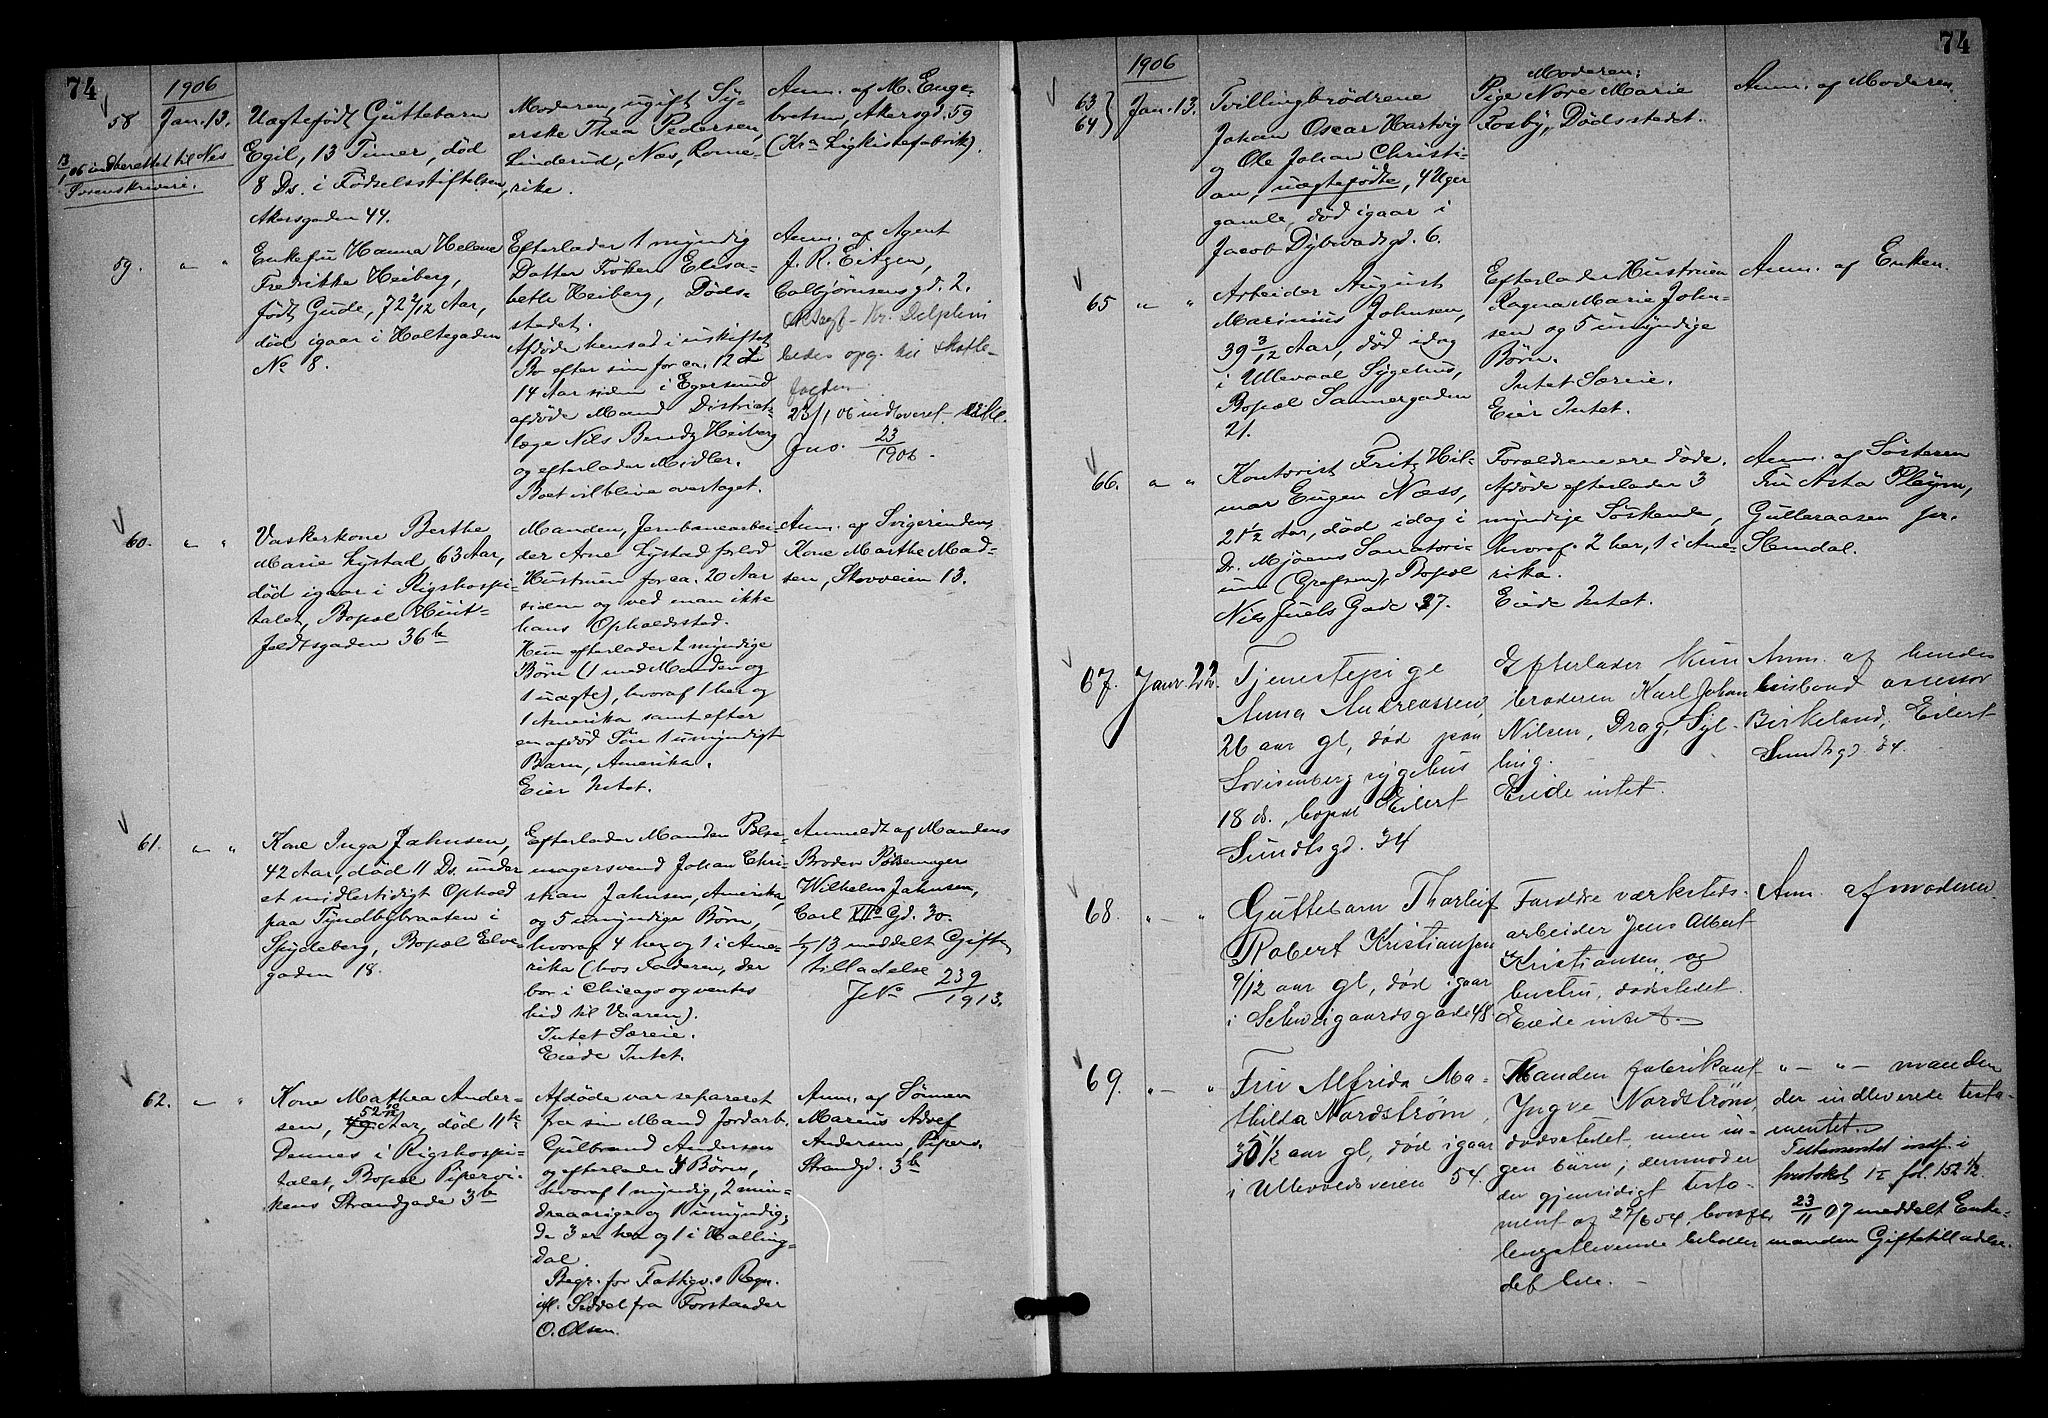 74
1906
58
Jan. 13.
13/1 06 indberettet til Nes
Sorenskriveri.
Uægtefødt Guttebarn
Egil, 13 Timer, død
8 Ds. i Fødselsstiftelsen,
Akersgaden 44.
Moderen, ugift Sy-
erske Thea Pedersen,
Linderud, Næs, Rome-
rike.
Anm. af M. Enge-
bretsen, Akersgd. 59
(Kra Ligkistefabrik).
59.
" "
Enkefru Hanna Helene
Fredrikke Heiberg,
født Gude, 72 2/12 Aar,
død igaar i Holtegaden
No 8.
Efterlader 1 myndig
Datter Frøken Elisa-
beth Heiberg, Døds-
stedet.
Afdøde hensad i uskiftet
Bo efter sin for ca. 12 à
14 Aar siden i Egersund
afdøde Mand District-
læge Nils Bendz Heiberg
og efterlader Midler.
Boet vil blive overtaget.
Anm. af Agent
J. R. Eitzen,
Colbjørnsensgd. 2.
Kr. Delphin
bedes opg. til Skifte-
fogden
23/1 06 indleveret
Jno. 23/1906.
60.
" "
Vaskerkone Berthe
Marie Lystad, 63 Aar,
død igaar i Rigshospi-
talet, Bopæl Huit-
feldtsgaden 36 b
Manden, Jernbanearbei-
der Arne Lystad forlod
Hustruen for ca. 20 Aar
siden og ved man ikke
hans Opholdssted.
Hun efterlader 2 myndige
Børn (1 med Manden og
1 uægte), hvoraf 1 her og
1 Amerika samt efter
en afdød Søn 1 umyndigt
Barn, Amerika.
Eier Intet.
Anm. af Svigerinden,
Kone Marthe Mad-
sen, Skovveien 13.
61.
" "
Kone Inga Jahnsen,
42 Aar, død 11 Ds. under
et midlertidigt Ophold
paa Tyndbybraaten i
Spydeberg, Bopæl Elve-
gaden 18.
Efterlader Manden Pølse-
magersvend Johan Chri-
stian Jahnsen, Amerika,
og 5 umyndige Børn,
hvoraf 4 her og 1 i Ame-
rika (hos Faderen, der
bor i Chicago og ventes
hid til Vaaren).
Intet Særeie.
Eiede Intet.
Anmeldt af Mandens
Broder Pølsemager
Wilhelm Jahnsen,
Carl XIIs Gd. 30.
1/7 13 meddelt Gifte
tilladelse
JNo 239/1913.
62.
" "
Kone Mathea Ander-
52 10/12
sen, 49 Aar, død 11te
Dennes i Rigshospi-
talet, Bopæl Pipervi-
kens Strandgade 3 b
Afdøde var separeret
fra sin Mand Jordarb.
Gulbrand Andersen
og efterlader 4 Børn,
hvoraf 1 myndig, 2 min-
dreaarige og 1 umyndig;
de 3 er her og 1 i Halling-
dal.
Begr. for Fattigv.s Regn.
ifl. Seddel fra Forstander
O. Olsen.
Anm. af Sønnen
Marius Adolf
Andersen, Piperv.
Strandgd. 3 b
74
1906
63
64
Jan. 13.
Tvillingbrødrene
Johan Oscar Hartvig
og Ole Johan Christi-
an, uægtefødte, 4 Uger
gamle, død igaar i
Jacob Dybwadsgd. 6.
Moderen:
Pige Nove Marie
Fosby, Dødsstedet.
Anm. af Moderen.
65
" "
Arbeider August
Marinius Johnsen,
39 3/12 Aar, død idag
i Ullevaal Sygehus,
Bopæl Sannergaden
21.
Efterlader Hustruen
Ragna Marie John-
sen og 5 umyndige
Børn.
Intet Særeie.
Eier Intet.
Anm. af Enken.
66.
" "
Kontorist Fritz Hil-
mar Eugen Næss,
21 1/2 Aar, død idag i
Dr. Mjøens Sanatori-
um (Grefsen), Bopæl
Nils Juels Gade 27.
Forældrene ere døde.
Afdøde efterlader 3
myndige Søskende,
hvoraf 2 her, 1 i Ame-
rika.
Eiede Intet.
Anm. af Søsteren
Fru Asta Pleym,
Gulleraasen pr.
Slemdal.
67.
Janr. 22.
Tjenestepige
Anna Andreassen,
26 aar gl, død paa
Lovisenberg sygehus
18 ds., bopæl Eilert
Sundtsgd. 34
Efterlader Kun
broderen Karl Johan
Nilsen, Drag, Syl-
ling.
Eiede intet.
Anm. af hendes
husbond assessor
Birkeland, Eilert
Sundtsgd. 34.
68.
" "
Guttebarn Thorleif
Robert Kristiansen
9/12 aar gl, død igaar
i Schweigaardsgade 48.
Forældre værksteds-
arbeider Jens Albert
Kristiansen og
hustru, dødstedet.
Eiede intet.
Anm. af moderen
69.
" "
Fru Alfrida Ma-
thilda Nordstrøm,
35 1/2 aar gl, død igaar
i Ullevoldsveien 54.
Manden fabrikant
Yngve Nordstrøm,
dødstedet, men in-
gen børn; dermoder
der gjensidigt testa-
ment af 27/6 04, hvorefter
længstlevende beholder
det hele.
" " manden
der indleverete testa-
mentet.
Testamentet indf. i
protokol 12 fol. 152 1/2
23/11 07 meddelt Enke-
manden Giftetilladelse.